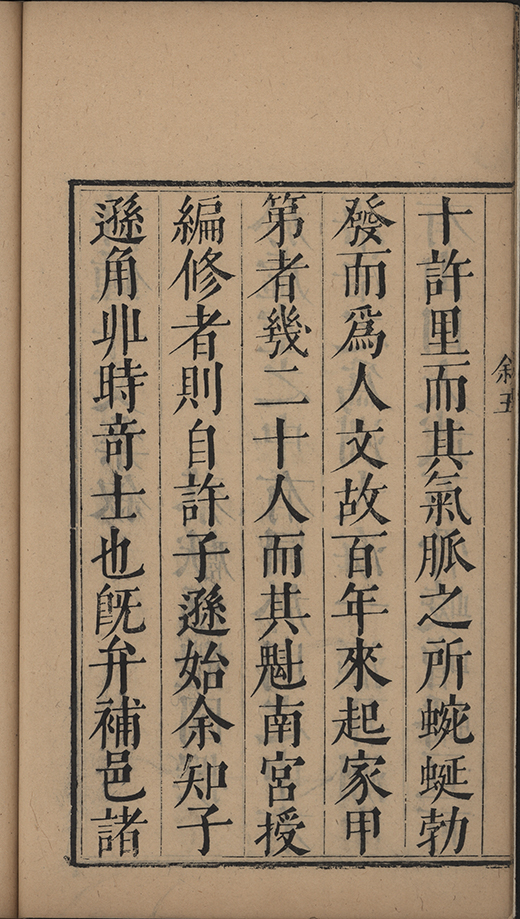 十許里而其氣脈之所蜿蜒勃
發而爲人文故百年來起家甲
第者幾二十人而其魁南宮授
編修者則自許子遜始余知子
遜角丱時竒士也旣弁補邑諸
叙五